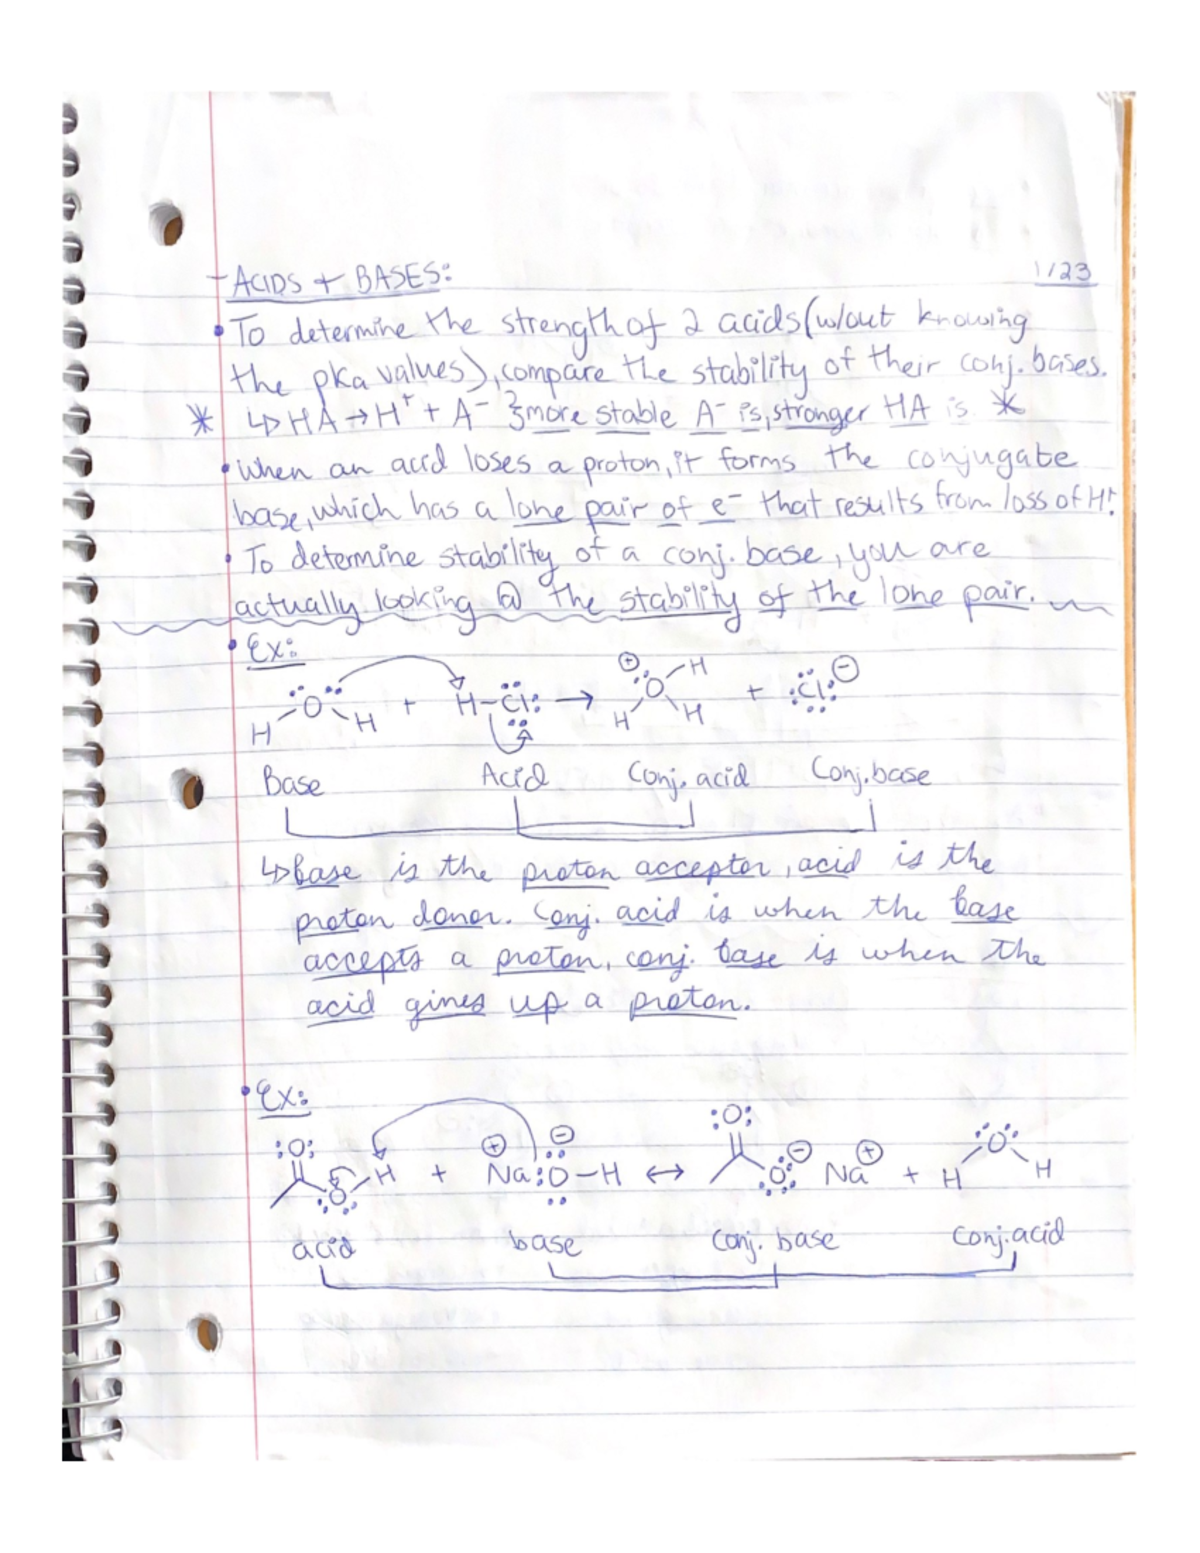 - ACIDS + BASES: 1/23
• To determine the strength of 2 acids (w/out knowing
the pKa values), compare the stability of their conj. bases.
* ↳ HA → H⁺ + A⁻ } more stable A⁻ is, stronger HA is *
• When an acid loses a proton, it forms the conjugate
base, which has a lone pair of e⁻ that results from loss of H⁺.
• To determine stability of a conj. base, you are
actually looking @ the stability of the lone pair.
• Ex:
H O H + H-Cl: → ⊕ H O H H + :Cl: ⊖
Base Acid Conj. acid Conj. base
↳ base is the proton acceptor, acid is the
proton donor. Conj. acid is when the base
accepts a proton, conj. base is when the
acid gives up a proton.
• Ex:
:O: O H + ⊕ Na ⊖ :O-H ↔ :O: O ⊖ Na ⊕ + H O H
acid base Conj. base Conj. acid